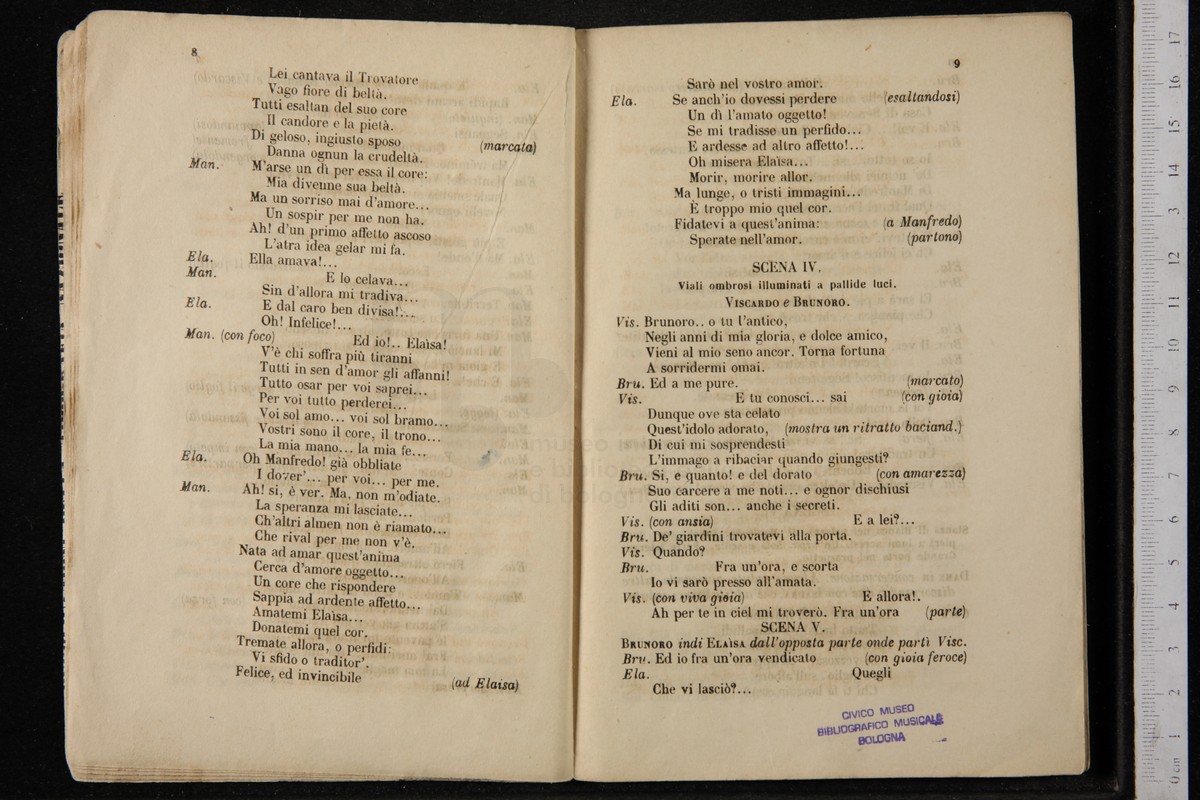 8
Lei cantava il Trovatore
Vago fiore di beltà.
Tutti esaltan del suo core
Il candore e la pietà.
Di geloso, ingiusto sposo (marcata)
Danna ognun la crudeltà.
Man. M'arse un dì per essa il core:
Mia divenne sua beltà.
Ma un sorriso mai d'amore...
Un sospir per me non ha.
Ah! d'un primo affetto ascoso
L'atra idea gelar mi fa.
Ela. Ella amava!...
Man. E lo celava...
Sin d'allora mi tradiva...
Ela. E dal caro ben divisa!...
Oh! Infelice!...
Man. (con foco) Ed io!.. Elaìsa!
V'è chi soffra più tiranni
Tutti in sen d'amor gli affanni!
Tutto osar per voi saprei...
Per voi tutto perderei...
Voi sol amo... voi sol bramo...
Vostri sono il core, il trono...
La mia mano... la mia fe...
Ela. Oh Manfredo! già obbliate
I dover'... per voi... per me.
Man. Ah! si, è ver. Ma, non m'odiate.
La speranza mi lasciate...
Ch'altri almen non è riamato...
Che rival per me non v'è.
Nata ad amar quest'anima
Cerca d'amore oggetto...
Un core che rispondere
Sappia ad ardente affetto...
Amatemi Elaìsa...
Donatemi quel cor.
Tremate allora, o perfidi:
Vi sfido o traditor'.
Felice, ed invincibile (ad Elaisa)
9
Sarò nel vostro amor.
Ela. Se anch'io dovessi perdere (esaltandosi)
Un dì l'amato oggetto!
Se mi tradisse un perfido...
E ardesse ad altro affetto!...
Oh misera Elaìsa...
Morir, morire allor.
Ma lunge, o tristi immagini...
È troppo mio quel cor.
Fidatevi a quest'anima: (a Manfredo)
Sperate nell'amor. (partono)
SCENA IV.
Viali ombrosi illuminati a pallide luci.
VISCARDO e BRUNORO.
Vis. Brunoro.. o tu l'antico,
Negli anni di mia gloria, e dolce amico,
Vieni al mio seno ancor. Torna fortuna
A sorridermi omai.
Bru. Ed a me pure. (marcato)
Vis. E tu conosci... sai (con gioia)
Dunque ove sta celato
Quest'idolo adorato, (mostra un ritratto baciand.)
Di cui mi sosprendesti
L'immago a ribaciar quando giungesti?
Bru. Si, e quanto! e del dorato (con amarezza)
Suo carcere a me noti... e ognor dischiusi
Gli aditi son... anche i secreti.
Vis. (con ansia) E a lei?...
Bru. De' giardini trovatevi alla porta.
Vis. Quando?
Bru. Fra un'ora, e scorta
Io vi sarò presso all'amata.
Vis. (con viva gioia) E allora!.
Ah per te in ciel mi troverò. Fra un'ora (parte)
SCENA V.
BRUNORO indi ELAÌSA dall'opposta parte onde partì Visc.
Bru. Ed io fra un'ora vendicato (con gioia feroce)
Ela. Quegli
Che vi lasciò?...
CIVICO MUSEO
BIBLIOGRAFICO MUSICALE
BOLOGNA